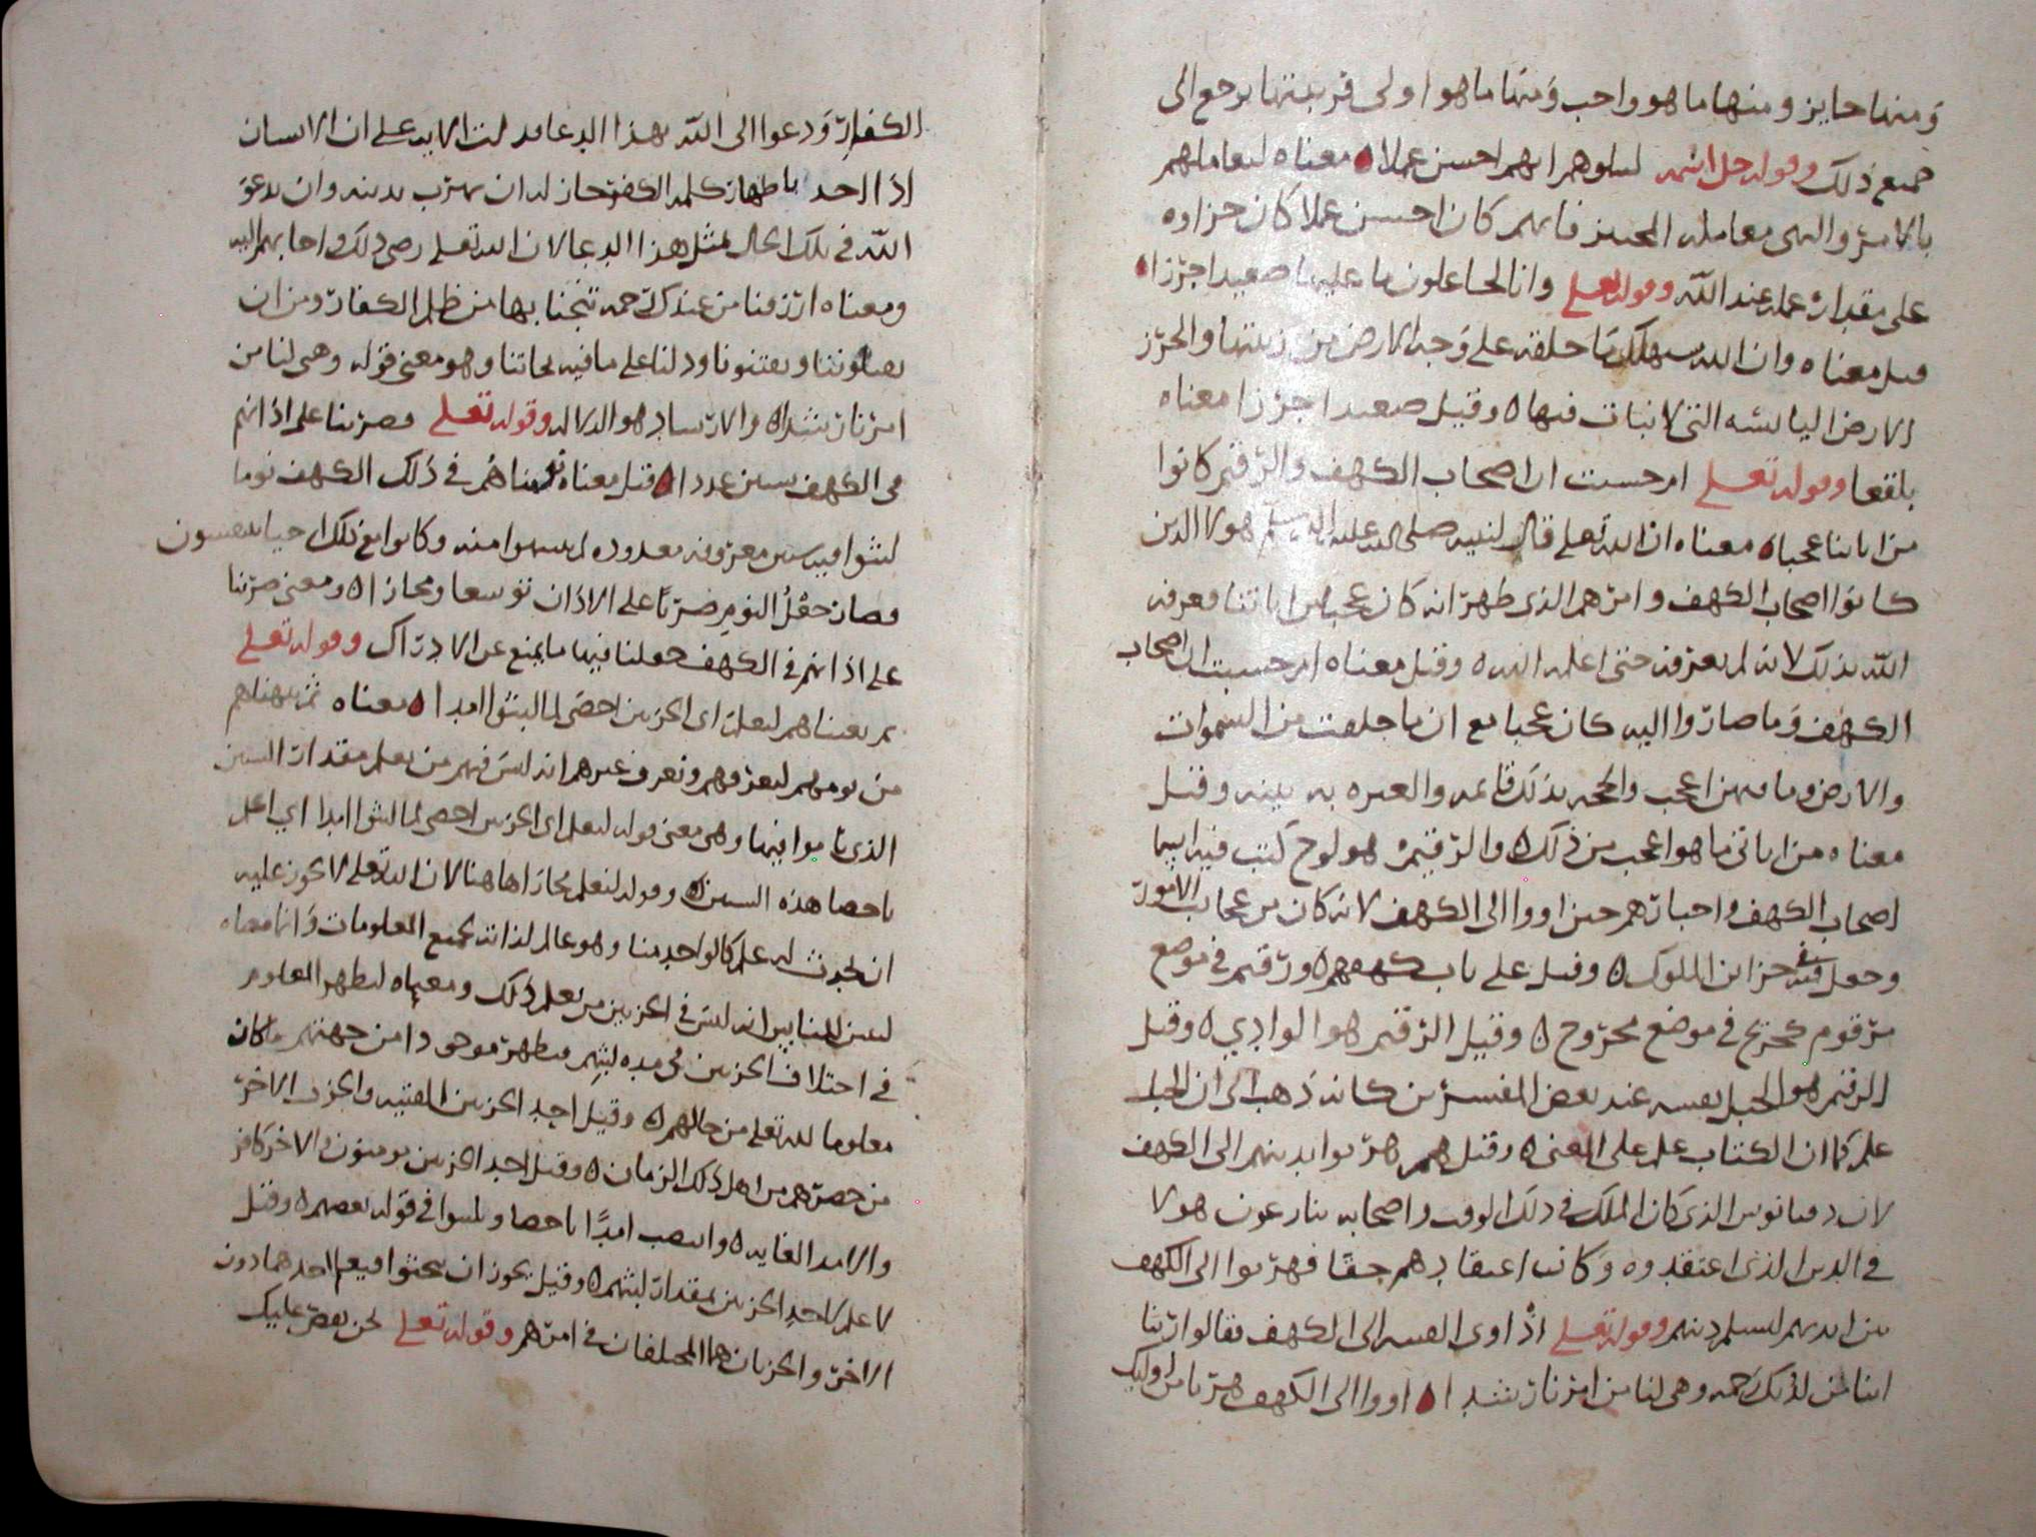 ومنها جايز ومنها ما هو واجب ومنها ما هو اولى فزينتها يرجع الى
جميع ذلك وقوله جل اسمه لنبلوهم ايهم احسن عملا معناه ليعاملهم
بالامر والنهي معاملة المختبر فايهم كان احسن عملا كان جزاوه
على مقدار عمله عند الله وقوله تعلى وانا لجاعلون ما عليها صعيدا جرزا
قيل معناه وان الله سيهلك ما خلقه على وجه الارض من زينتها والجرز
الارض اليابسه التي لا نبات فيها وقيل صعيدا جرزا معناه
بلقعا وقوله تعلى ام حسبت ان اصحاب الكهف والرقيم كانوا
من اياتنا عجبا معناه ان الله تعلى قال لنبيه صلى الله عليه وسلم هولا الذين
كانوا اصحاب الكهف وامرهم الذي ظهر انه كان عجبا من اياتنا فعرفه
الله بذلك لانه لم يعرفه حتى اعلمه الله وقيل معناه ام حسبت ان اصحاب
الكهف وما صاروا اليه كان عجبا مع ان ما خلقت من السموات
والارض وما فيهن اعجب والحجه بذلك قايمه والعبره به بينه وقيل
معناه من اياتي ما هو اعجب من ذلك والرقيم هو لوح كتب فيه اسما
اصحاب الكهف واخبارهم حين اووا الى الكهف لانه كان من عجايب الامور
وجعل في خزاين الملوك وقيل على باب كهفهم ورقيم في موضع
مرقوم كجريح في موضع مجروح وقيل الرقيم هو الوادي وقيل
الرقيم هو الجبل نفسه عند بعض المفسرين كانه ذهب الى ان الجبل
علم كما ان الكتاب علم على المعنى وقيل هم هربوا بدينهم الى الكهف
لان دقيانوس الذي كان الملك في ذلك الوقت واصحابه ينازعون هولا
في الدين الذي اعتقدوه وكانت اعتقادهم حقا فهربوا الى الكهف
من ايديهم ليسلم دينهم وقوله تعلى اذ اوى الفتيه الى الكهف فقالوا ربنا
اتنا من لدنك رحمه وهي لنا من امرنا رشدا اووا الى الكهف هربا من اوليك
الكفار ودعوا الى الله بهذا الدعا فدلت الايه على ان الانسان
اذا اخذ باظهار كلمه الكفر جاز له ان يهرب بدينه وان يدعو
الله في تلك الحال بمثل هذا الدعا لان الله تعلى رضي ذلك واجابهم اليه
ومعناه ارزقنا من عندك رحمه تنجنا بها من ظلم الكفار ومن ان
يضلوننا ويفتنونا ودلنا على ما فيه نجاتنا وهو معنى قوله وهي لنا من
امرنا رشدا والارشاد هو الدلاله وقوله تعلى فضربنا على اذانهم
في الكهف سنين عددا قيل معناه نومناهم في ذلك الكهف نوما
لبثوا فيه سنين معروفه معدوده لم ينتبهوا منه وكانوا مع ذلك احيا يتنفسون
فصار جعل النوم ضربا على الاذان توسعا ومجازا ومعنى ضربنا
على اذانهم في الكهف جعلنا فيها ما يمنع عن الادراك وقوله تعلى
ثم بعثناهم لنعلم اي الحزبين احصى لما لبثوا امدا معناه ثم نبهناهم
من نومهم لنعرفهم ونعرف غيرهم انه ليس فيهم من يعلم مقدار السنين
الذي ناموا فيها وهي معنى قوله لنعلم اي الحزبين احصى لما لبثوا امدا اي اعلم
باحصا هذه السنين وقوله لنعلم مجازا هاهنا لان الله تعلى لا يجوز عليه
ان يحدث له علم كالواحد منا وهو عالم لذاته بجميع المعلومات وانما معناه
ليبين للناس انه ليس في الحزبين من يعلم ذلك ومعناه ليظهر المعلوم
في اختلاف الحزبين في مده لبثهم فيظهر موجودا من جهتهم ما كان
معلوما لله تعلى من حالهم وقيل احد الحزبين الفتيه والحزب الاخر
من حضرهم من اهل ذلك الزمان وقيل احد الحزبين مومنون والاخر كافر
والامد الغايه وانتصب امدا باحصا ولبثوا في قول بعضهم وقيل
لا علم لاحد الحزبين بمقدار لبثهم وقيل يجوز ان بعثوا فيعلم احدهما دون
الاخر والحزبان هما المختلفان في امرهم وقوله تعلى نحن نقص عليك